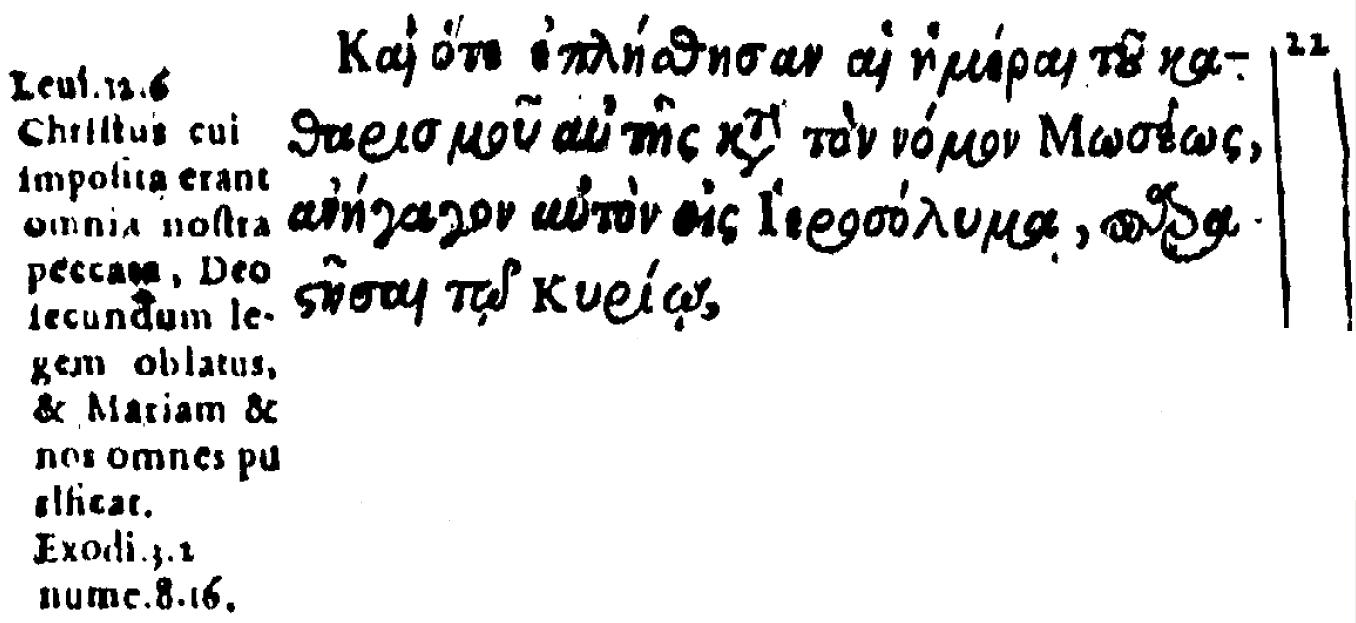 Leui.12.6
Christus cui
imposita erant
omnia nostra
peccata, Deo
secundum le-
gem oblatus,
& Mariam &
nos omnes pu
rificat.
Exodi.3.2
nume.8.16.
Καὶ ὅτε ἐπλήσθησαν αἱ ἡμέραι τοῦ κα- 22
θαρισμοῦ αὐτῆς κατὰ τὸν νόμον Μωσέως,
ἀνήγαγον αὐτὸν εἰς Ἱεροσόλυμα, παρα-
στῆσαι τῷ Κυρίῳ,